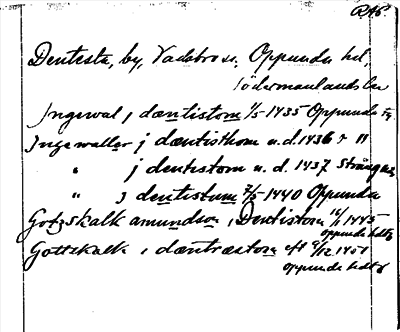 RAP.
Dentesta, by, Vadsbro sn, Oppunda hd,
Södermanlands län
Ingewal j dæntistom 1/5 1435 Oppunda tg
Ingewaller j dæntisthom u.d. 1436 " "
" j dentistom u.d. 1437 Strängnäs
" j dentistum 7/5 1440 Oppunda
Gotzskalk amundson i Dentistom 14/1 1445
oppunda hdtg
Gottskalk i dæntræstom eft 9/12 1451
oppunda hdtg